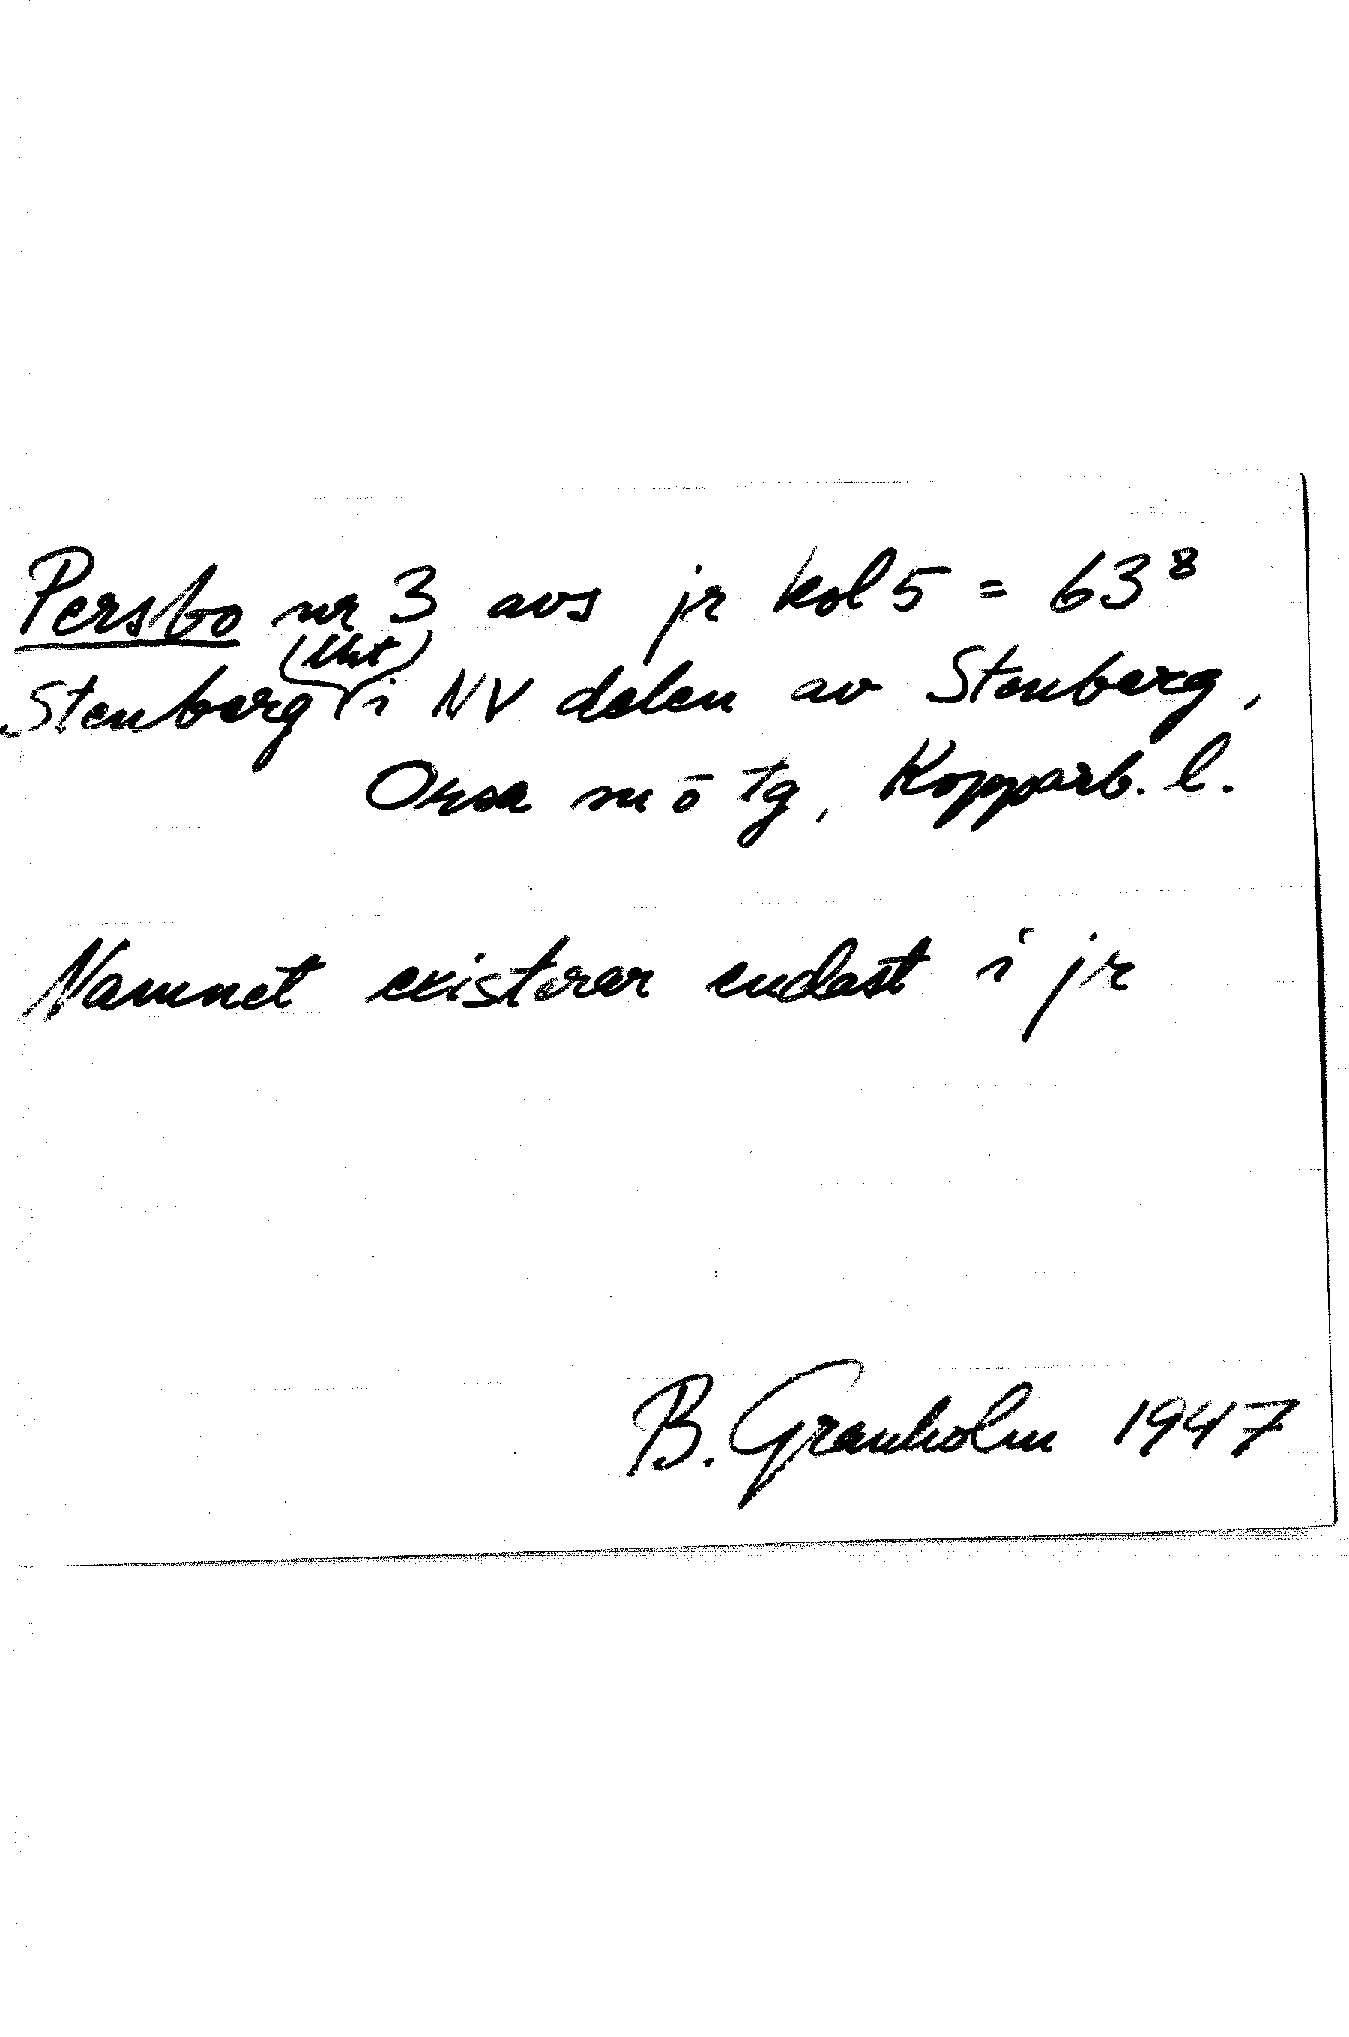 Persbo nr 3 avs jr kol 5 = 63⁸
Stenberg (lht) i NV delen av Stenberg,
Orsa m o tg, Kopparb. l.
Namnet existerar endast i jr
B. Granholm 1947